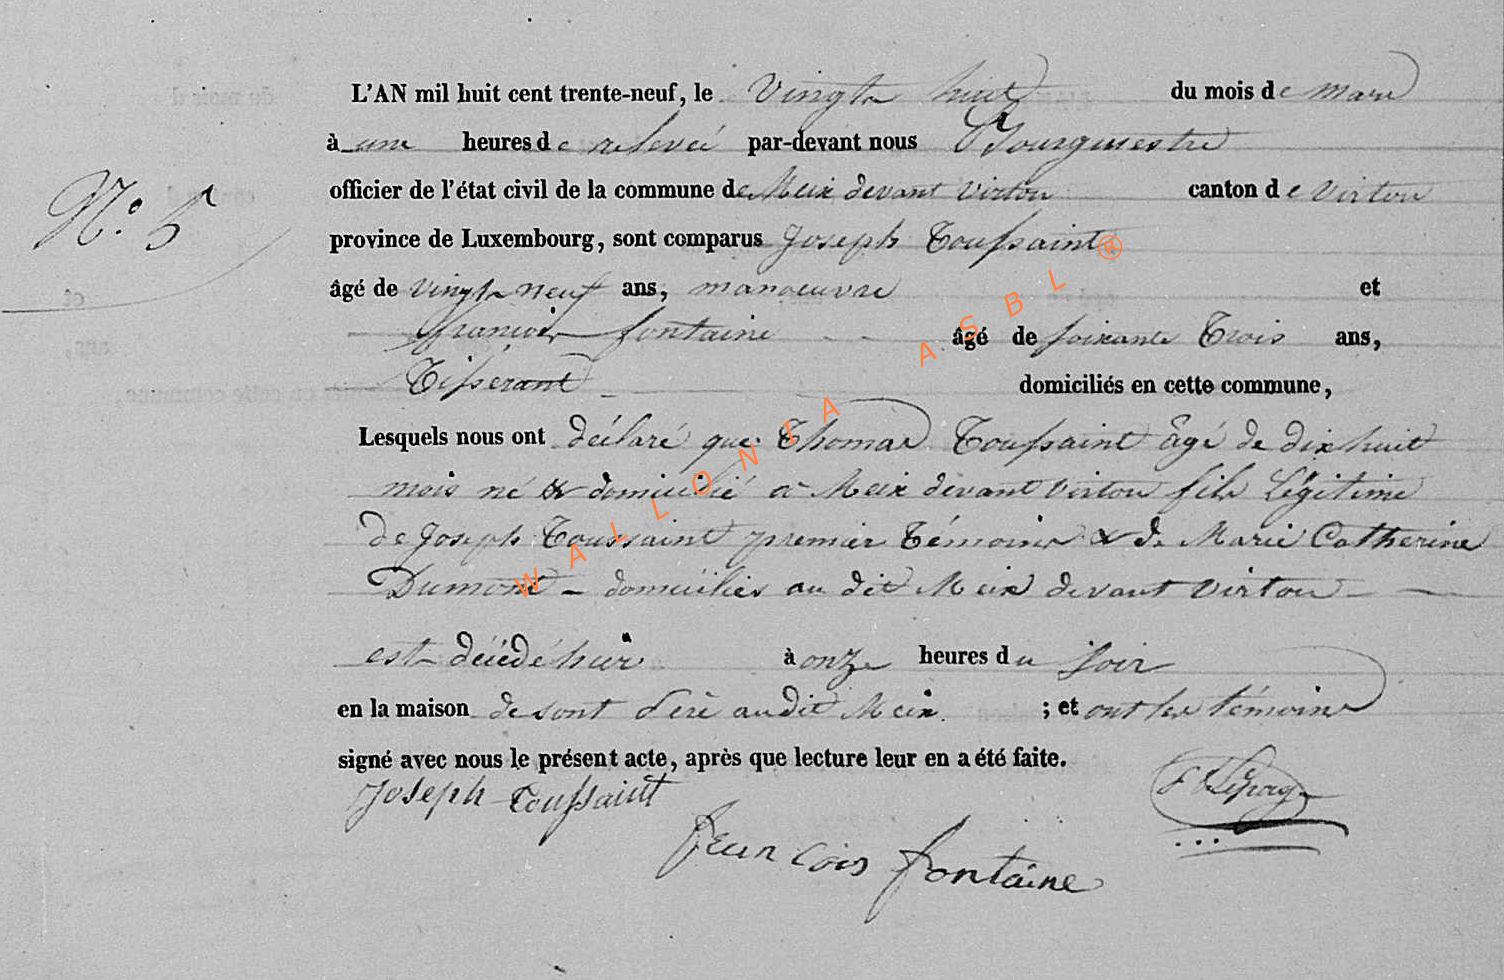 L'AN mil huit cent trente-neuf, le Vingt huit du mois de mars
à une heures de relevée par-devant nous Bourgmestre
officier de l'état civil de la commune de Meix devant Virton canton de Virton
N.° 5
province de Luxembourg, sont comparus Joseph Toussaint
âgé de Vingt neuf ans, manoeuvre et
François fontaine âgé de soixante Trois ans,
Tisserant domiciliés en cette commune,
Lesquels nous ont déclaré que Thomas Toussaint âgé de dix huit
mois né & domicilié a Meix devant Virton fils Légitime
de Joseph Toussaint premier Témoins & de Marie Catherine
Dumont domiciliés au dit Meix devant Virton
est décédé hier à onze heures du soir
en la maison de sont Père au dit Meix ; et ont les témoins
signé avec nous le présent acte, après que lecture leur en a été faite.
Joseph Toussaint
francois fontaine
WALLONIA ASBL ®